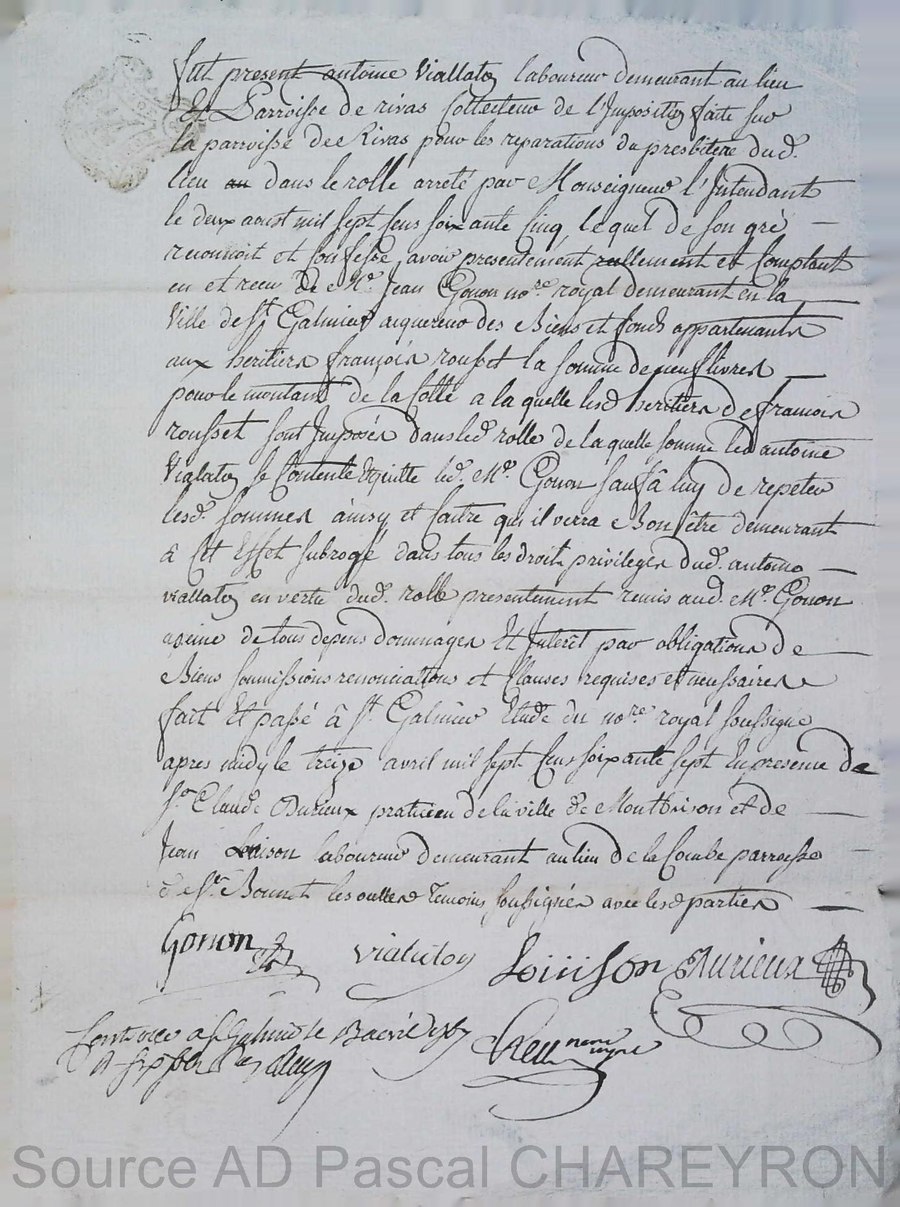 fut present antoine viallaton laboureur demeurant au lieu
et Parroisse de rivas Collecteur de l'Imposition faite sur
la parroisse de Rivas pour les reparations du presbitere dud.
lieu au dans le rolle arreté par Monseigneur l'Intendant
le deux aoust mil sept cens soixante cinq lequel de son gré
reconnoit et confesse avoir presentement reellement et comptant
eu et receu de Me. Jean Gonon nore royal demeurant en la
Ville de St Galmier acquereur des Biens et fonds appartenants
aux heritiers françois rousset la somme de neuf livres
pour le montant de la Cotte a la quelle lesd heritiers de francois
rousset sont Imposés dans led rolle de la quelle somme led antoine
Viallaton se Contente et quitte led. Me. Gonon sauf â luy de repeter
lesd. sommes ainsy et contre qui il verra Bon être demeurant
â Cet Effet subrogé dans tous les droit privileges dud. antoine
viallaton en vertu dud. rolle presentement remis aud. Me. Gonon
a peine de tous depens dommages Et Interêt par obligations de
Biens soumissions renonciations et Clauses requises et necessaires
fait Et passé â St. Galmier Etude du nore royal soussigné
apres midy le treize avril mil sept Cens soixante sept En presence de
Sr. Claude Durieux praticien de la ville de Montbrison et de
Jean Loison laboureur demeurant au lieu de la Combe parroisse
de St. Bonnet les oulles temoins soussignés avec lesd parties
Gonon viallaton Louison Durieux
Controllé a St Galmier le 13 avril 1767
Source AD Pascal CHAREYRON